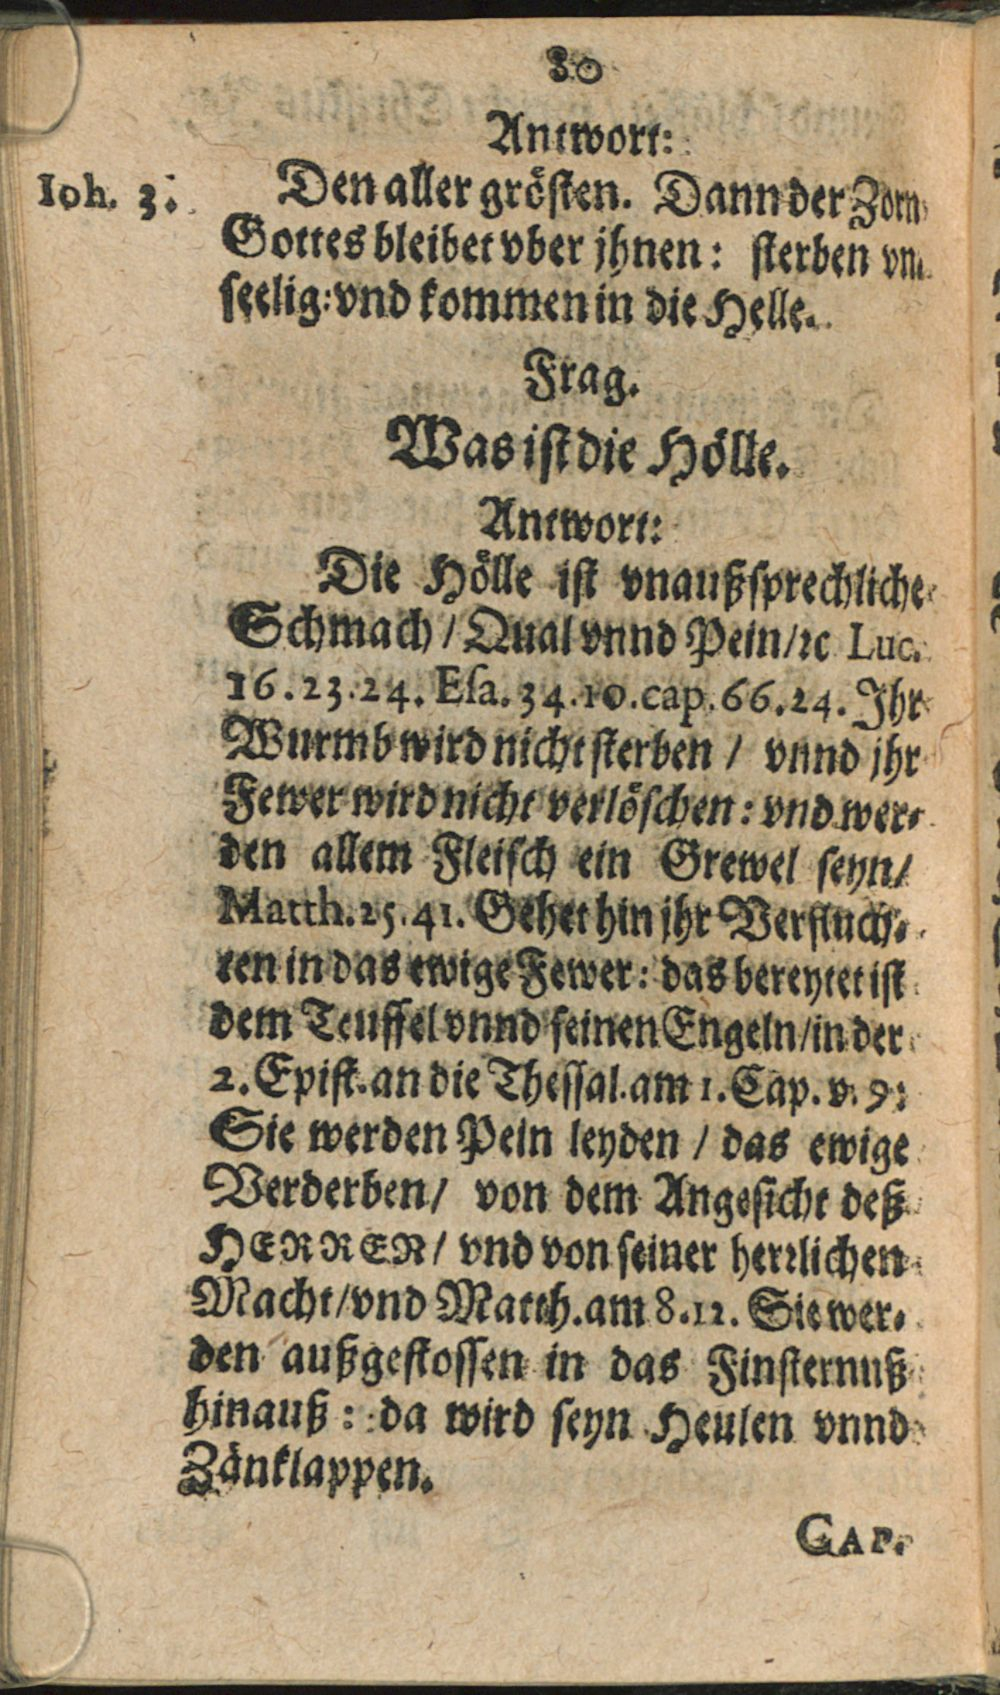 30
Antwort:
Ioh. 3. Den aller grösten. Dann der Zorn
Gottes bleibet vber jhnen: sterben vn-
seelig: vnd kommen in die Helle.
Frag.
Was ist die Hölle.
Antwort:
Die Hölle ist vnaußsprechliche
Schmach / Qual vnnd Pein / ꝛc Luc.
16.23.24. Esa. 34.10. cap. 66.24. Jhr
Wurmb wird nicht sterben / vnnd jhr
Fewer wird nicht verlöschen: vnd wer-
den allem Fleisch ein Grewel seyn /
Matth. 25.41. Gehet hin jhr Verfluch-
ten in das ewige Fewer: das bereytet ist
dem Teuffel vnnd seinen Engeln / in der
2. Epist. an die Thessal. am 1. Cap. v. 9:
Sie werden Pein leyden / das ewige
Verderben / von dem Angesicht deß
HERREN / vnd von seiner herꝛlichen
Macht / vnd Matth. am 8.12. Sie wer-
den außgestossen in das Finsternuß
hinauß: da wird seyn Heulen vnnd
Zänklappen.
CAP.